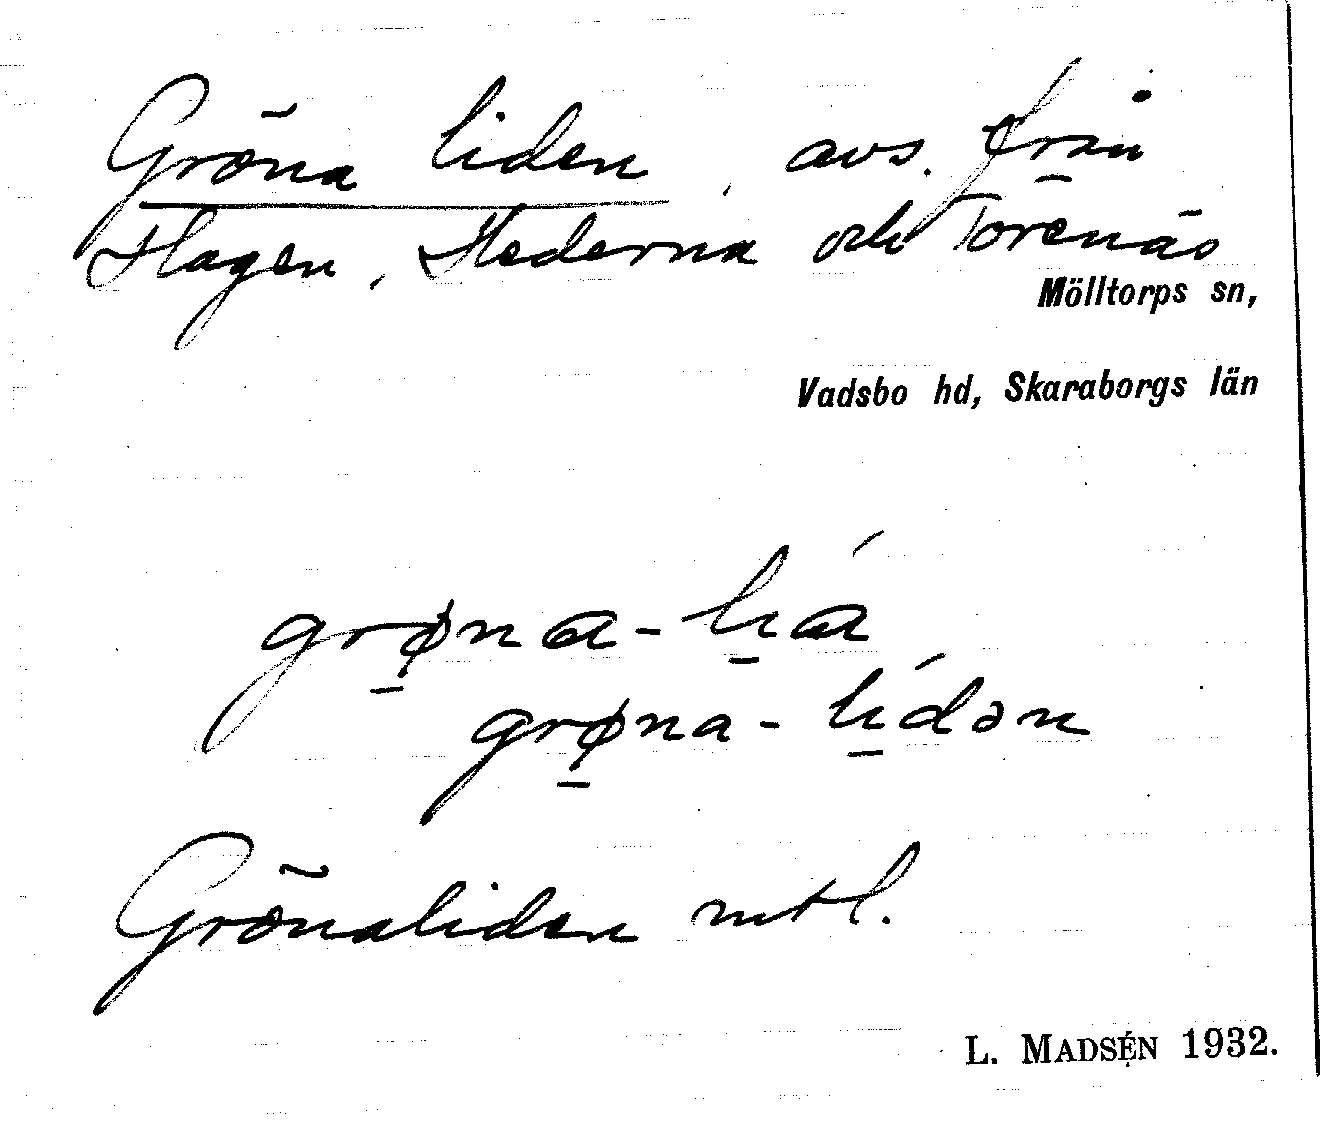 Gröna liden, avs. från
Hagen, Hederna och Torenäs
Mölltorps sn,
Vadsbo hd, Skaraborgs län
grø̱na-li̱á
grø̱na-lí̱dən
Grönaliden mtl.
L. MADSÉN 1932.